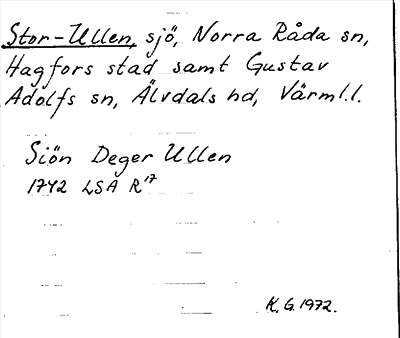 Stor-Ullen, sjö, Norra Råda sn,
Hagfors stad samt Gustav
Adolfs sn, Älvdals hd, Värml.l.
Siön Deger Ullen
1742 LSA R17
K.G.1972.